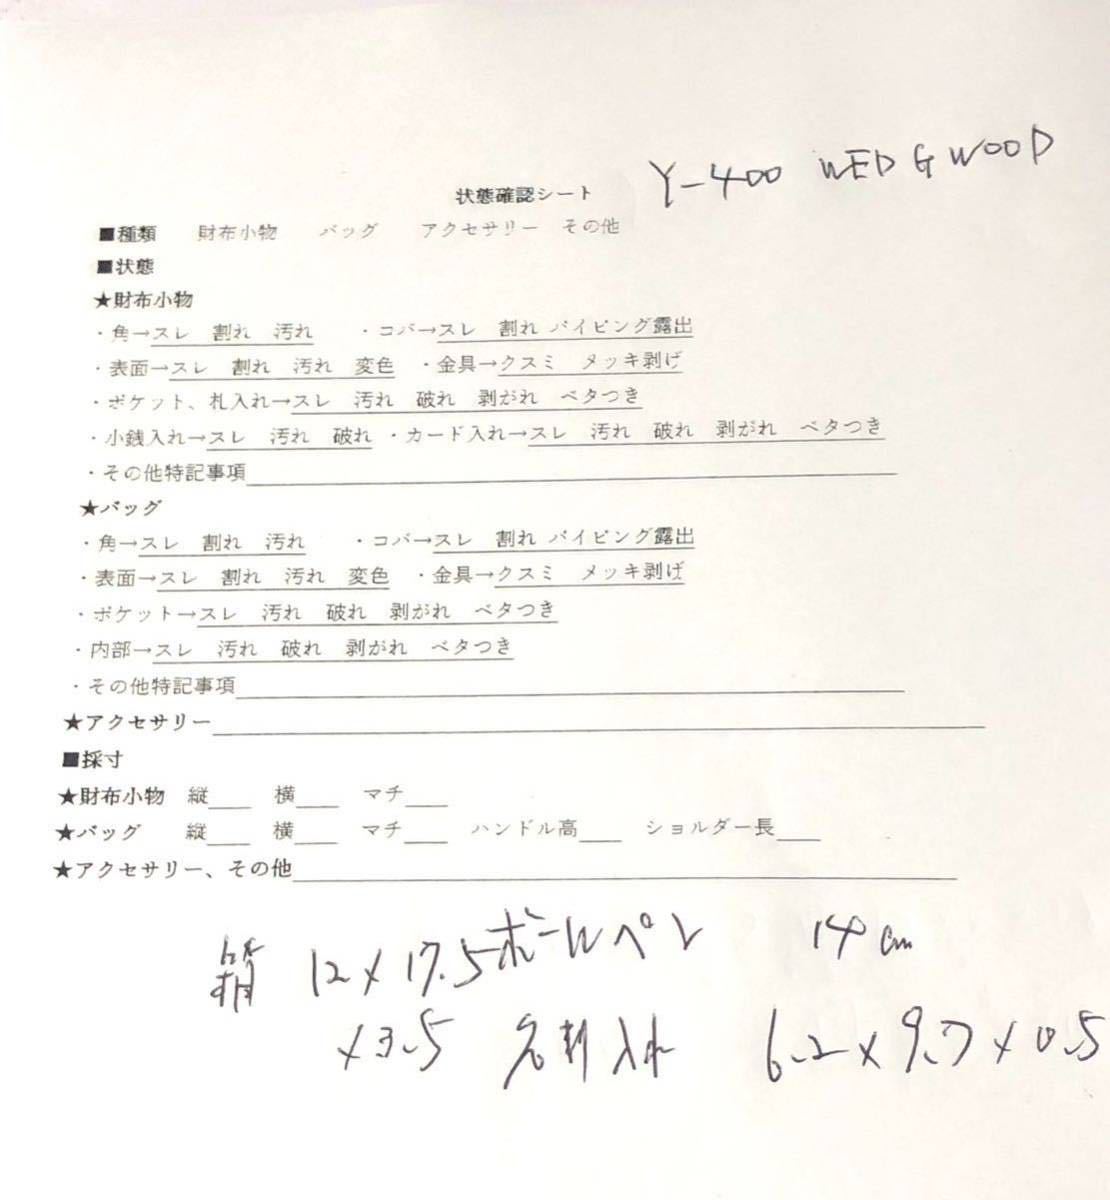 Y-400 WEDGWOOD
状態確認シート
■種類 財布小物 バッグ アクセサリー その他
■状態
★財布小物
・角→スレ 割れ 汚れ ・コバ→スレ 割れ パイピング露出
・表面→スレ 割れ 汚れ 変色 ・金具→クスミ メッキ剥げ
・ポケット、札入れ→スレ 汚れ 破れ 剥がれ ベタつき
・小銭入れ→スレ 汚れ 破れ ・カード入れ→スレ 汚れ 破れ 剥がれ ベタつき
・その他特記事項
★バッグ
・角→スレ 割れ 汚れ ・コバ→スレ 割れ パイピング露出
・表面→スレ 割れ 汚れ 変色 ・金具→クスミ メッキ剥げ
・ポケット→スレ 汚れ 破れ 剥がれ ベタつき
・内部→スレ 汚れ 破れ 剥がれ ベタつき
・その他特記事項
★アクセサリー
■採寸
★財布小物 縦___ 横___ マチ___
★バッグ 縦___ 横___ マチ___ ハンドル高___ ショルダー長___
★アクセサリー、その他
箱 12×17.5 ボールペン 14cm
×3.5 名刺入れ 6.2×9.7×0.5